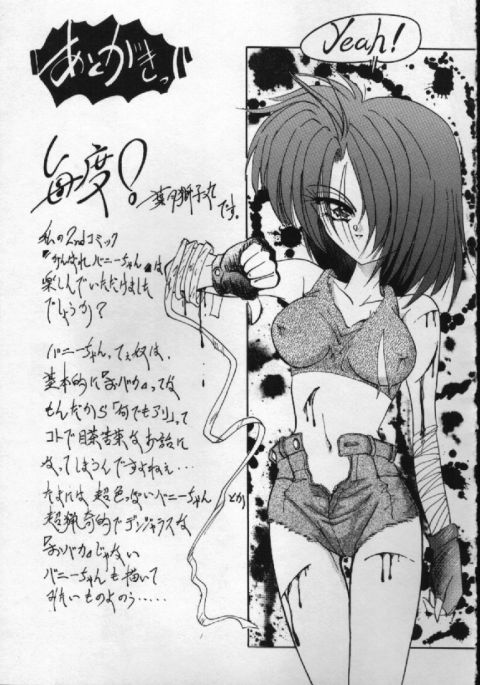 あとがきっ!!
Yeah!
毎度!
です。
私の2ndコミック
『がんばれバニーちゃん』は
楽しんでいただけました
でしょうか?
バニーちゃん、てぇ奴は、
基本的に『おバカ』ってな
もんだから「何でもアリ」って
コトで目茶苦茶なお話に
なってしまうんですよねぇ…
たまには、超色っぽいバニーちゃんとか
超猟奇的でデンジャラスな
『おバカ』じゃない
バニーちゃんも描いて
みたいものよのう……